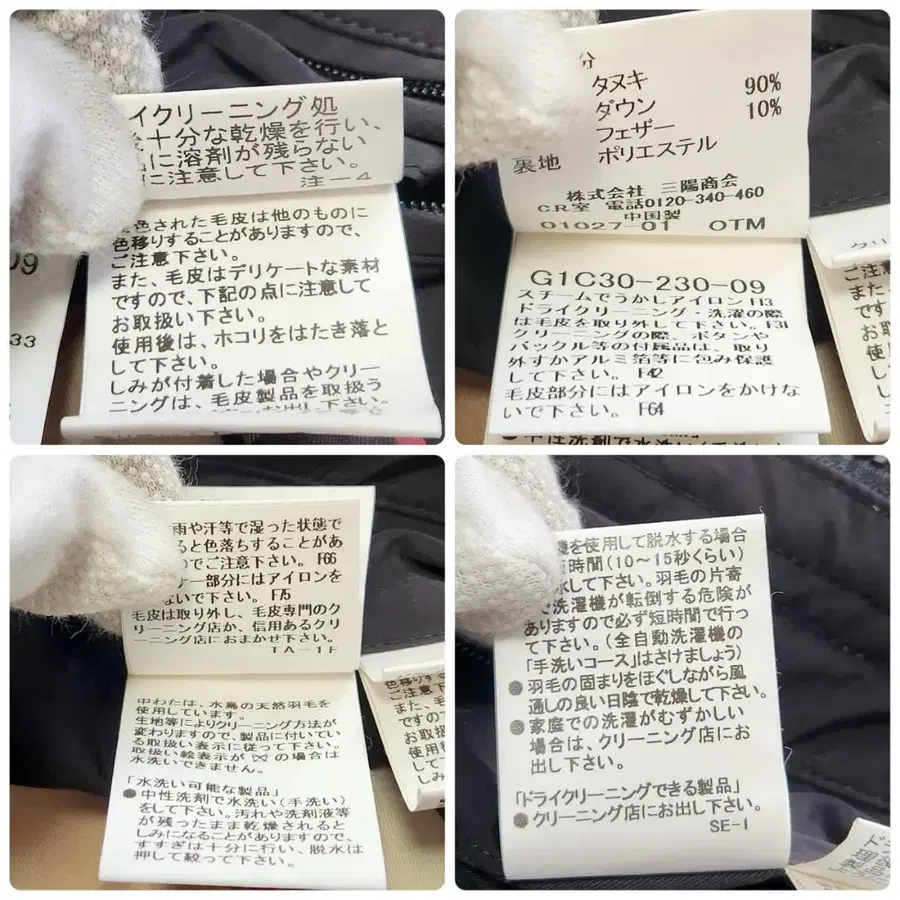 イクリーニング処
十分な乾燥を行い、
に溶剤が残らない
に注意して下さい。
注-4
色された毛皮は他のものに
色移りすることがありますので、
ご注意下さい。
また、毛皮はデリケートな素材
ですので、下記の点に注意して
お取扱い下さい。
使用後は、ホコリをはたき落と
して下さい。
しみが付着した場合やクリー
ニングは、毛皮製品を取扱う
09
33
分
タヌキ
ダウン 90%
フェザー 10%
裏地 ポリエステル
株式会社 三陽商会
C.R室 電話0120-340-460
中国製
01027-01 OTM
G1C30-230-09
スチームでうかしアイロン F13
ドライクリーニング・洗濯の際
は毛皮を取り外して下さい。F31
クリーニングの際、ボタンや
バックル等の付属品は、取り
外すかアルミ箔等に包み保護
して下さい。 F42
毛皮部分にはアイロンをかけな
いで下さい。 F64
中性洗剤で水洗い(手洗い)
雨や汗等で湿った状態で
ると色落ちすることがあ
でご注意下さい。 F66
ー部分にはアイロンを
ないで下さい。 F75
毛皮は取り外し、毛皮専門のク
リーニング店か、信用あるクリ
ーニング店におまかせ下さい。
TA-1F
中わたは、水鳥の天然羽毛を
使用しています。
生地等によりクリーニング方法が
変わりますので、製品に付いてい
る取扱い表示に従って下さい。
取扱い絵表示が の場合は
水洗いできません。
「水洗い可能な製品」
●中性洗剤で水洗い(手洗い)
をして下さい。汚れや洗剤液等
が残ったまま乾燥されると
しみになることがありますので、
すすぎは十分に行い、脱水は
押して絞って下さい。
色移りする
ご注意下
また、毛
ですので
お取扱
使用後
して下
しみが
機を使用して脱水する場合
時間(10〜15秒くらい)
水して下さい。羽毛の片寄
で洗濯機が転倒する危険が
ありますので必ず短時間で行っ
て下さい。(全自動洗濯機の
「手洗いコース」はさけましょう)
●羽毛の固まりをほぐしながら風
通しの良い日陰で乾燥して下さい。
●家庭での洗濯がむずかしい
場合は、クリーニング店にお
出し下さい。
「ドライクリーニングできる製品」
●クリーニング店にお出し下さい。
SE-1